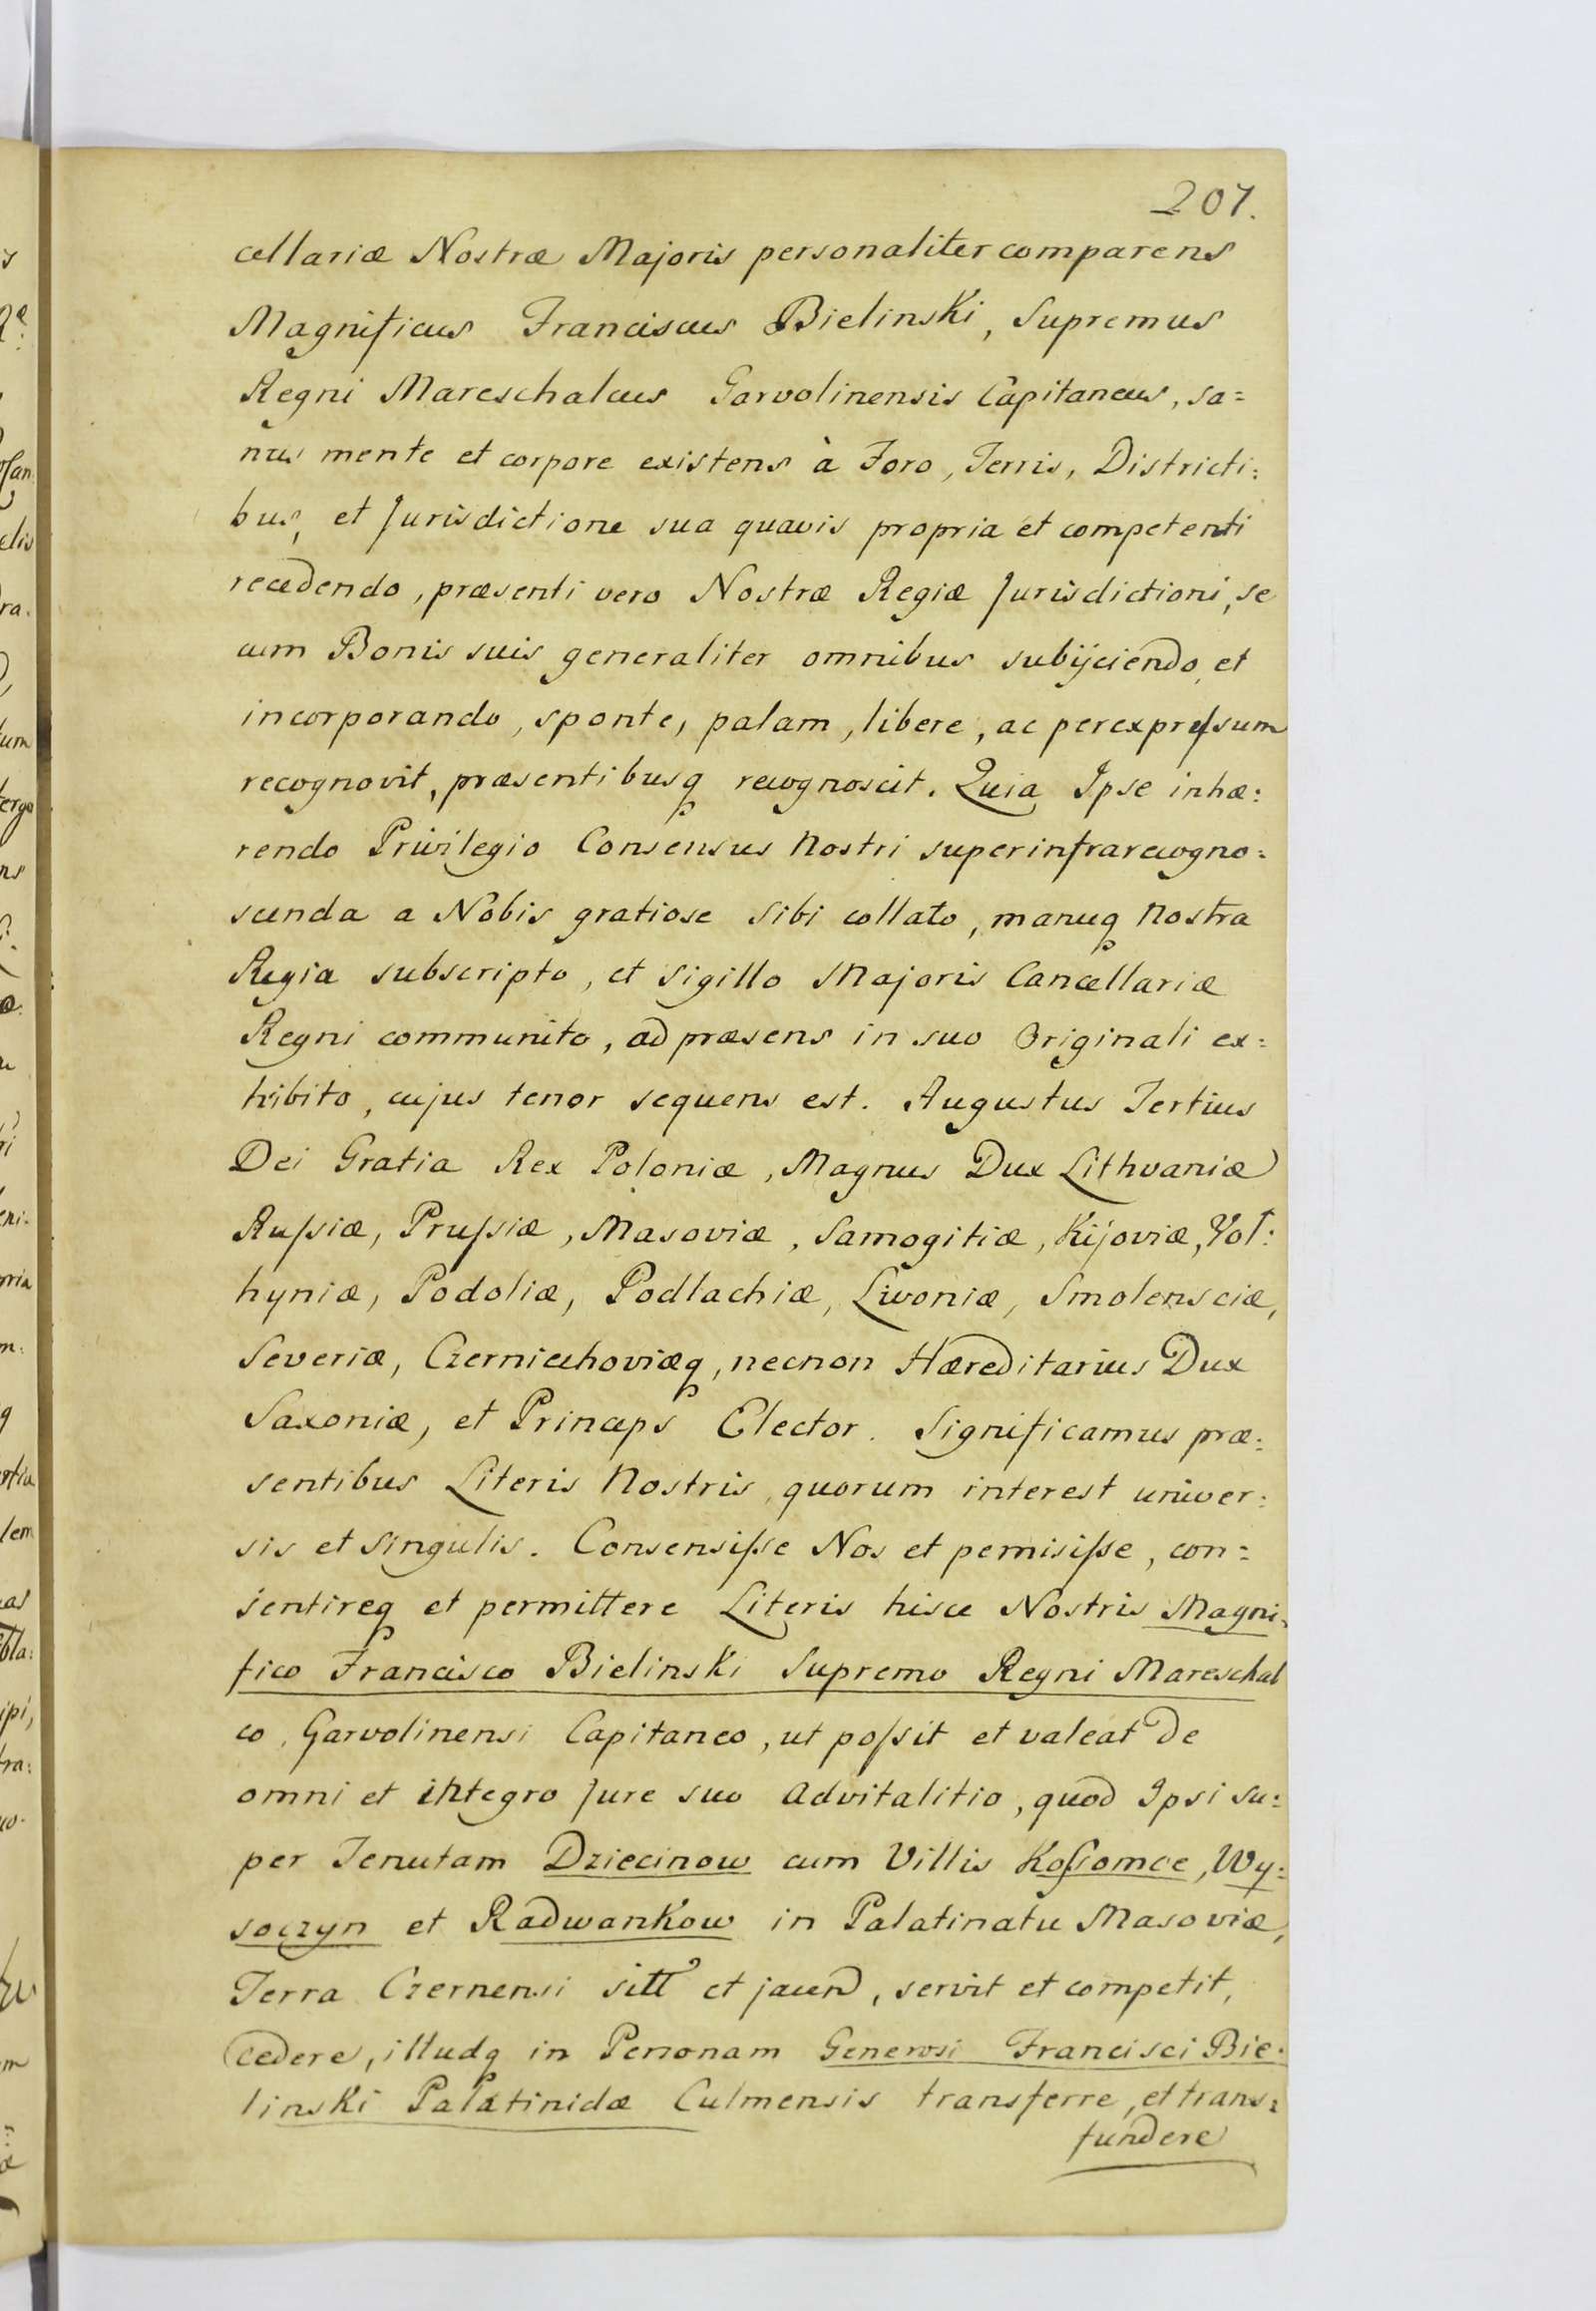 207.
cellariæ Nostræ Majoris personaliter comparens
Magnificus Franciscus Bielinski, Supremus
Regni Mareschalcus Garvolinensis Capitaneus, sa=
nus mente et corpore existens à Foro, Terris, Districti:
bus, et Jurisdictione sua quavis propria et competenti
recedendo, præsenti vero Nostræ Regiæ Jurisdictioni, se
cum Bonis suis generaliter omnibus subijciendo, et
incorporando, sponte, palam, libere, ac perexpreſsum
recognovit, præsentibusq recognoscit. Quia Ipse inhæ:
rendo Privilegio Consensus Nostri superinfrarecogno:
scenda a Nobis gratiose Sibi collato, manuq Nostra
Regia subscripto, et Sigillo Majoris Cancellariæ
Regni communito, ad præsens in suo Originali ex:
hibito, cujus tenor sequens est. Augustus Tertius
Dei Gratia Rex Poloniæ, Magnus Dux Lithvaniæ
Ruſsiæ, Pruſsiæ, Masoviæ, Samogitiæ, Kijoviæ, Vol:
hyniæ, Podoliæ, Podlachiæ, Livoniæ, Smolensciæ,
Severiæ, Czerniechoviæq, necnon Hæreditarius Dux
Saxoniæ, et Princeps Elector. Significamus præ:
sentibus Literis Nostris, quorum interest univer:
sis et singulis. Consensiſse Nos et pemisiſse, con=
sentireq et permittere Literis hisce Nostris Magni:
fico Francisco Bielinski Supremo Regni Mareschal
co, Garvolinensi Capitaneo, ut poſsit et valeat de
omni et integro Jure suo Advitalitio, quod Ipsi su:
per Tenutam Dziecinow cum Villis Koſsomce, Wy:
soczyn et Radwankow in Palatinatu Masoviæ,
Terra Czernensi sitt et jacen, servit et competit,
cedere, illudq in Personam Generosi Francisci Bie:
linski Palatinidæ Culmensis transferre, et trans:
fundere